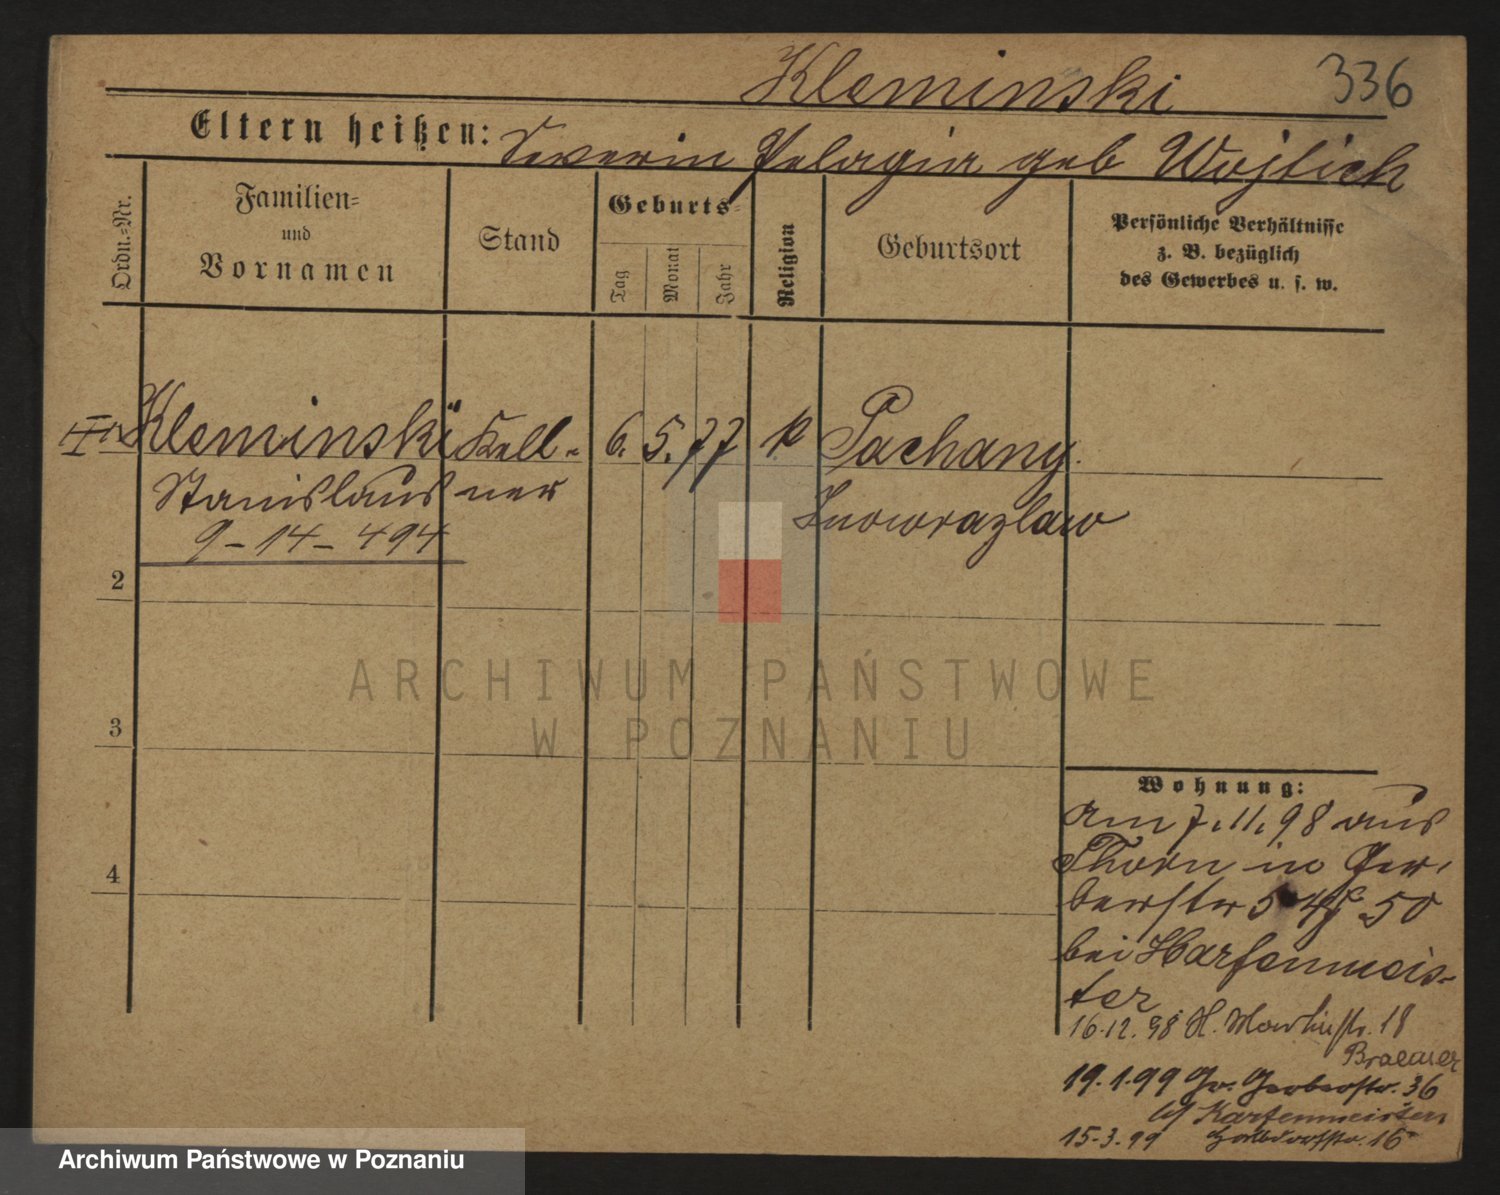 Kleminski
336
Eltern heißen: Severin Pelagia geb Wojtich
Ordn.-Nr.
Familien- und Vornamen
Stand
Geburts-
Tag
Monat
Jahr
Religion
Geburtsort
Persönliche Verhältnisse
z. B. bezüglich
des Gewerbes u. s. w.
Kleminski Kell- 6. 5. 77 k Pachany
Stanislaus ner Inowrazlaw
9-14-494
2
3
4
Wohnung:
am 7.11.98 aus
Thorn in Ger-
berstr 50
bei Harfenmeis-
ter
16.12.98 H. Martinstr. 18
19.1.99 Gr. Gerberstr. 36
15.3.99 16
ARCHIWUM PAŃSTWOWE
W POZNANIU
Archiwum Państwowe w Poznaniu